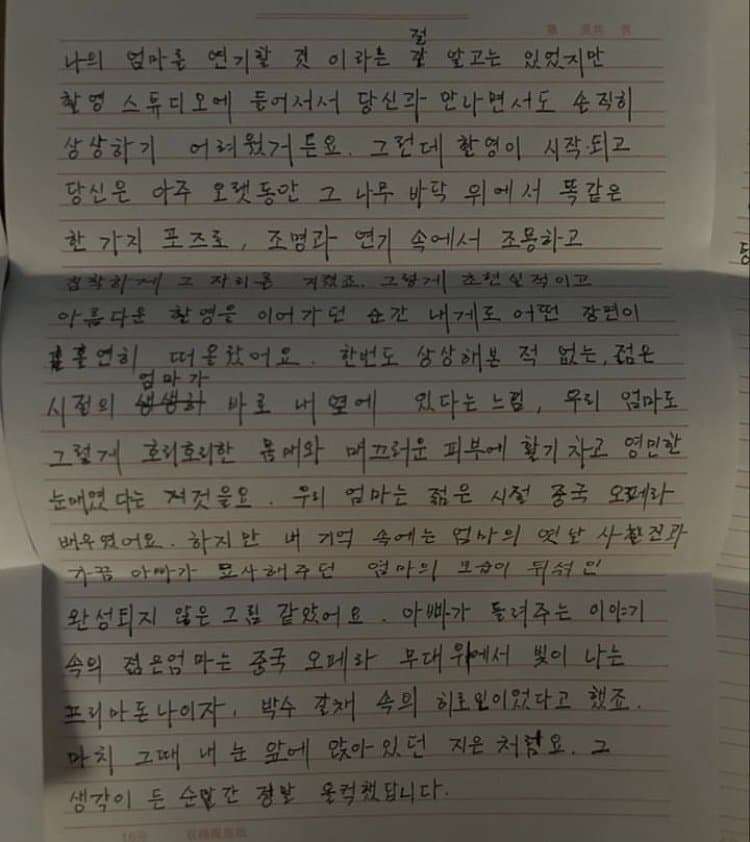 잘
나의 엄마를 연기할 것 이라는 잘 알고는 있었지만
촬영 스튜디오에 들어서서 당신과 만나면서도 솔직히
상상하기 어려웠거든요. 그런데 촬영이 시작되고
당신은 아주 오랫동안 그 나무 바닥 위에서 똑같은
한 가지 포즈로, 조명과 연기 속에서 조용하고
침착하게 그 자리를 지켰죠. 그렇게 초현실적이고
아름다운 촬영을 이어가던 순간 내게로 어떤 장면이
홀연히 떠올랐어요. 한번도 상상해본 적 없는, 젊은
엄마가
시절의 생생하 바로 내 옆에 있다는 느낌, 우리 엄마도
그렇게 호리호리한 몸매와 매끄러운 피부에 활기차고 영민한
눈매였다는 것을요. 우리 엄마는 젊은 시절 중국 오페라
배우였어요. 하지만 내 기억 속에는 엄마의 옛날 사진과
가끔 아빠가 묘사해주던 엄마의 모습이 뒤섞인
완성되지 않은 그림 같았어요. 아빠가 들려주는 이야기
속의 젊은엄마는 중국 오페라 무대위에서 빛이 나는
프리마돈나이자, 박수 갈채 속의 히로인이었다고 했죠.
마치 그때 내 눈 앞에 앉아있던 지은 처럼요. 그
생각이 든 순간 정말 울컥했답니다.